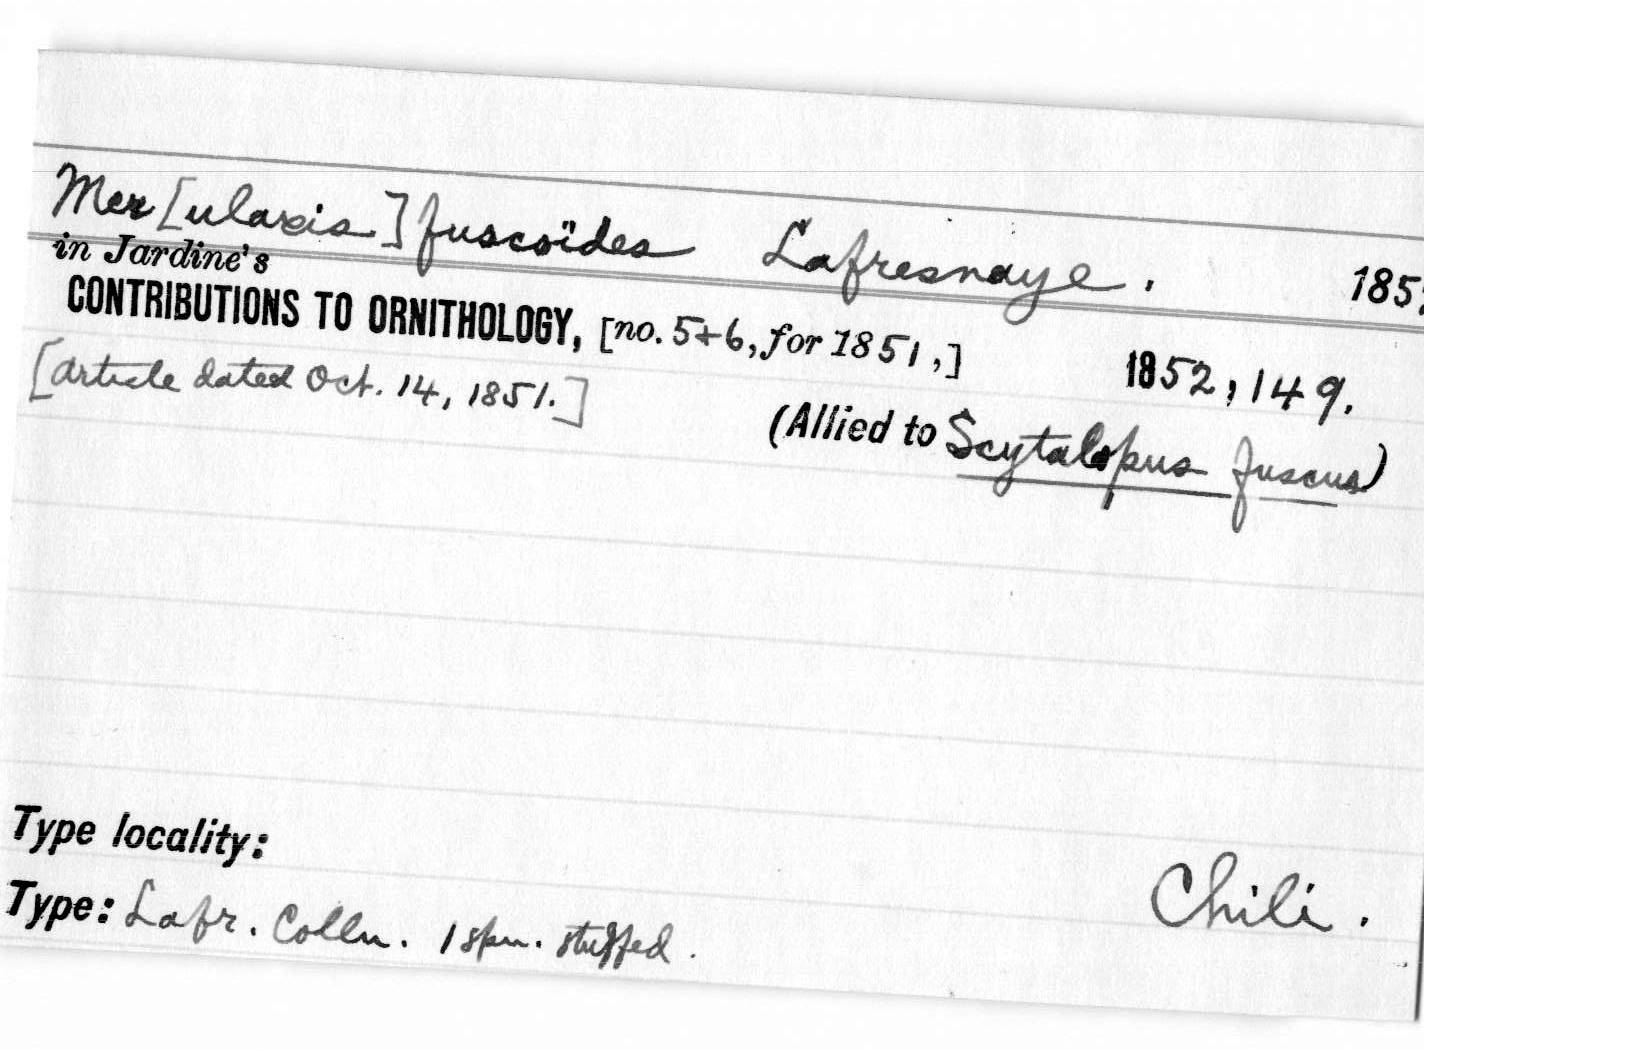 Mer[ulaxis] fuscoïdes Lafresnaye. 185
in Jardine's
CONTRIBUTIONS TO ORNITHOLOGY, [no. 5+6, for 1851,] 1852, 149.
[Article dated Oct. 14, 1851.]
(Allied to Scytalopus fuscus)
Type locality:
Chili.
Type: Lafr. Colln. 1 spn. stuffed.